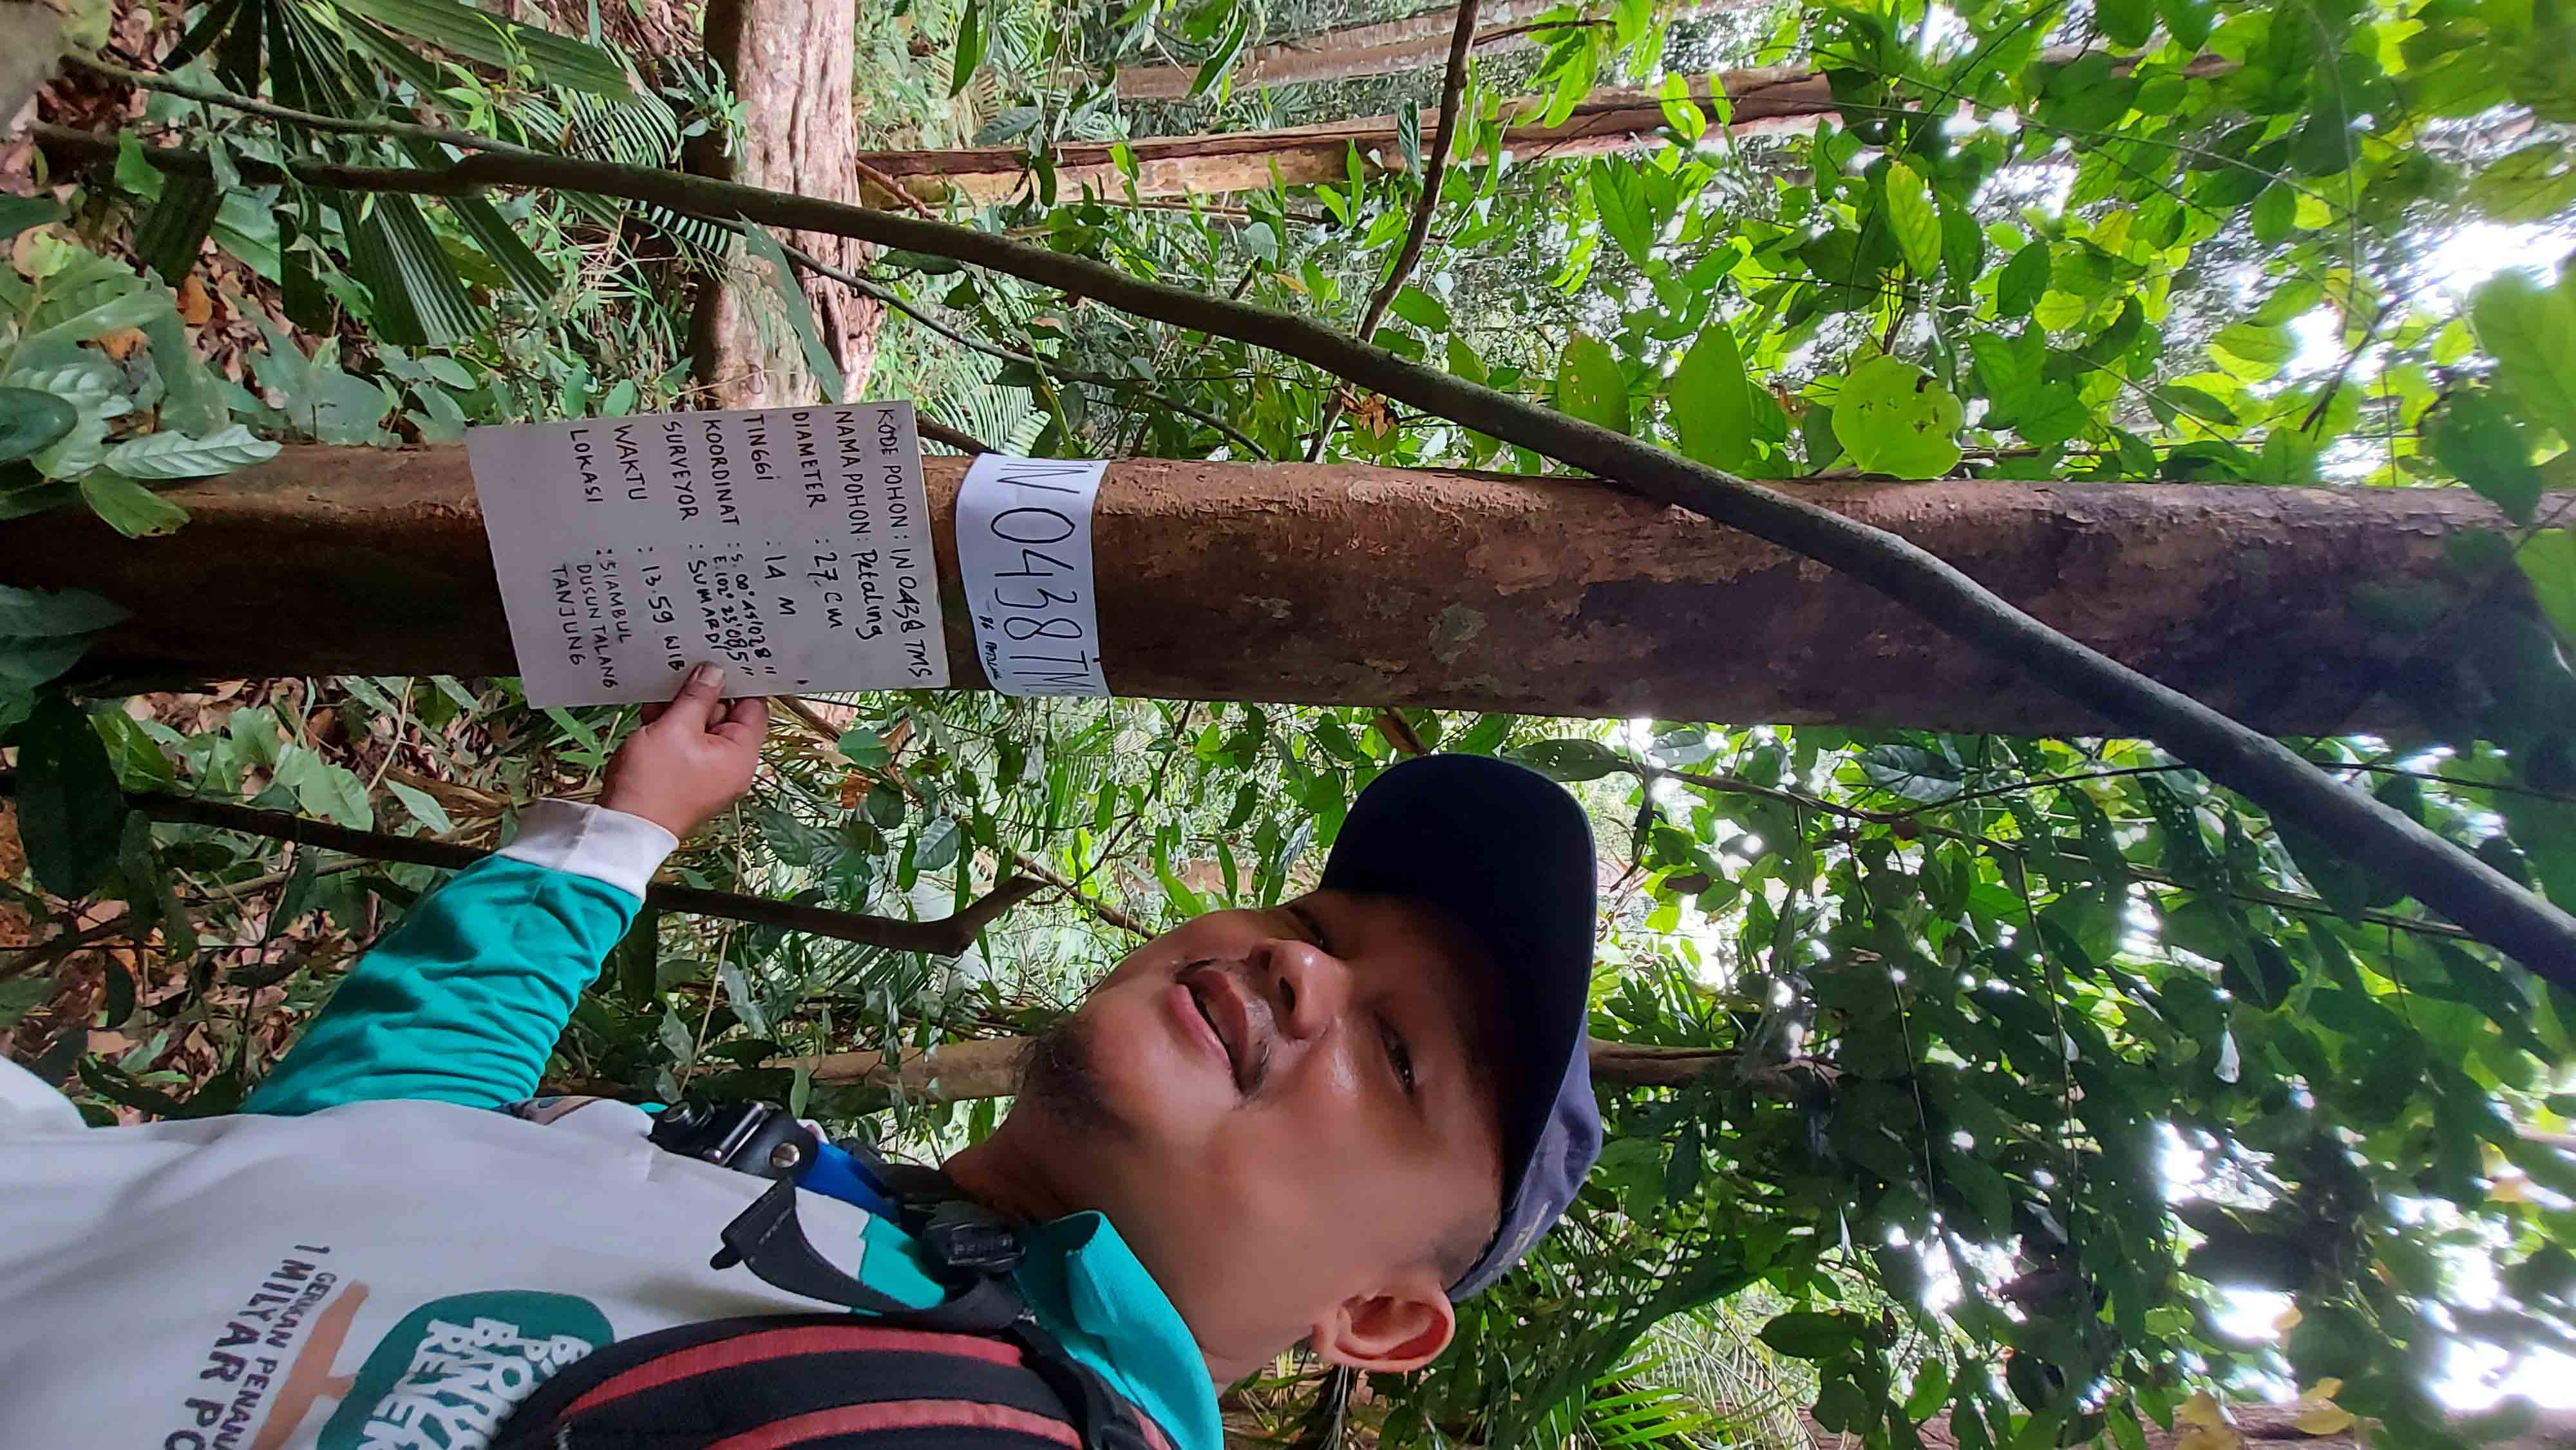 IN 0438 TMS
86 PETALING
KODE POHON : IN 0438 TMS
NAMA POHON : Petaling
DIAMETER : 27 CM
TINGGI : 14 M
KOORDINAT : S. 00° 45'028"
E. 102° 25'085"
SURVEYOR : SUMARDI
WAKTU : 13.59 WIB
LOKASI : SIAMBUL
DUSUN TALANG
TANJUNG
GERAKAN
1 MILYAR